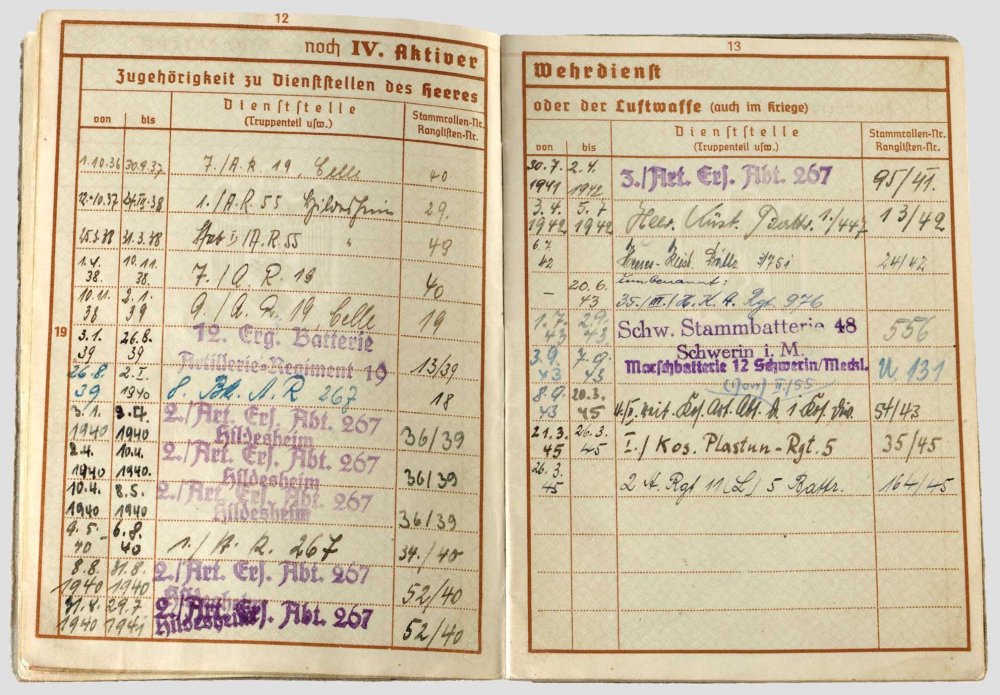 12
noch IV. Aktiver
Zugehörigkeit zu Dienststellen des Heeres
von bis
Dienststelle
(Truppenteil usw.)
Stammrollen-Nr.
Ranglisten-Nr.
19
1.10.36 30.9.37 7./A.R. 19, Celle 40
12.10.37 1./A.R. 55 Hildesheim 29.
31.3.38 /A.R. 55 " 49
1.4. 10.11.
38. 38. 7./A.R. 19 40
10.11. 2.1.
38 39 9./A.R. 19 Celle 19
3.1. 26.8. 12. Erg. Batterie
39 39 Artillerie-Regiment 19 13/39
26.8 2.I.
39 1940 8. Bt. A.R 267 18
3.1. 2./Art. Ers. Abt 267
1940 1940 Hildesheim 36/39
10.4. 2./Art. Ers. Abt. 267
1940 1940. Hildesheim 36/39
10.4. 8.5. 2./Art. Ers. Abt. 267
1940 1940 Hildesheim 36/39
9.5- 6.8.
40 40 1./A.R. 267 34./40
8.8. 31.8. 2./Art. Ers. Abt. 267
1940 1940 52/40
29.7. 2./Art. Ers. Abt. 267
1940 1941 Hildesheim 52/40
13
Wehrdienst
oder der Luftwaffe (auch im Kriege)
von bis
Dienststelle
(Truppenteil usw.)
Stammrollen-Nr.
Ranglisten-Nr.
30.7. 2.4. 3./Art. Ers. Abt. 267 95/41.
1941 1942
3.4. 5.7
1942 1942 Heer. Küst. Battr. 1./447 13/42
6.7.
42 Heeres-Küst. Battr. 3/751 24/42
umbenannt:
– 20.6.
43 35./III./H.K.A. Rgt. 976
1.7. 29. Schw. Stammbatterie 48 556
43 43 Schwerin i. M.
3.9. 7.9. Marschbatterie 12 Schwerin/Meckl. 131
43 43
8.9. 20.3.
43 45 reit. Art. Abt. 1 Div. 54/43
21.3. 26.3.
45 45 I./Kos. Plastun-Rgt. 5 35/45
26.3.
45 2 A. Rgt 11 (L) 5 Battr. 164/45